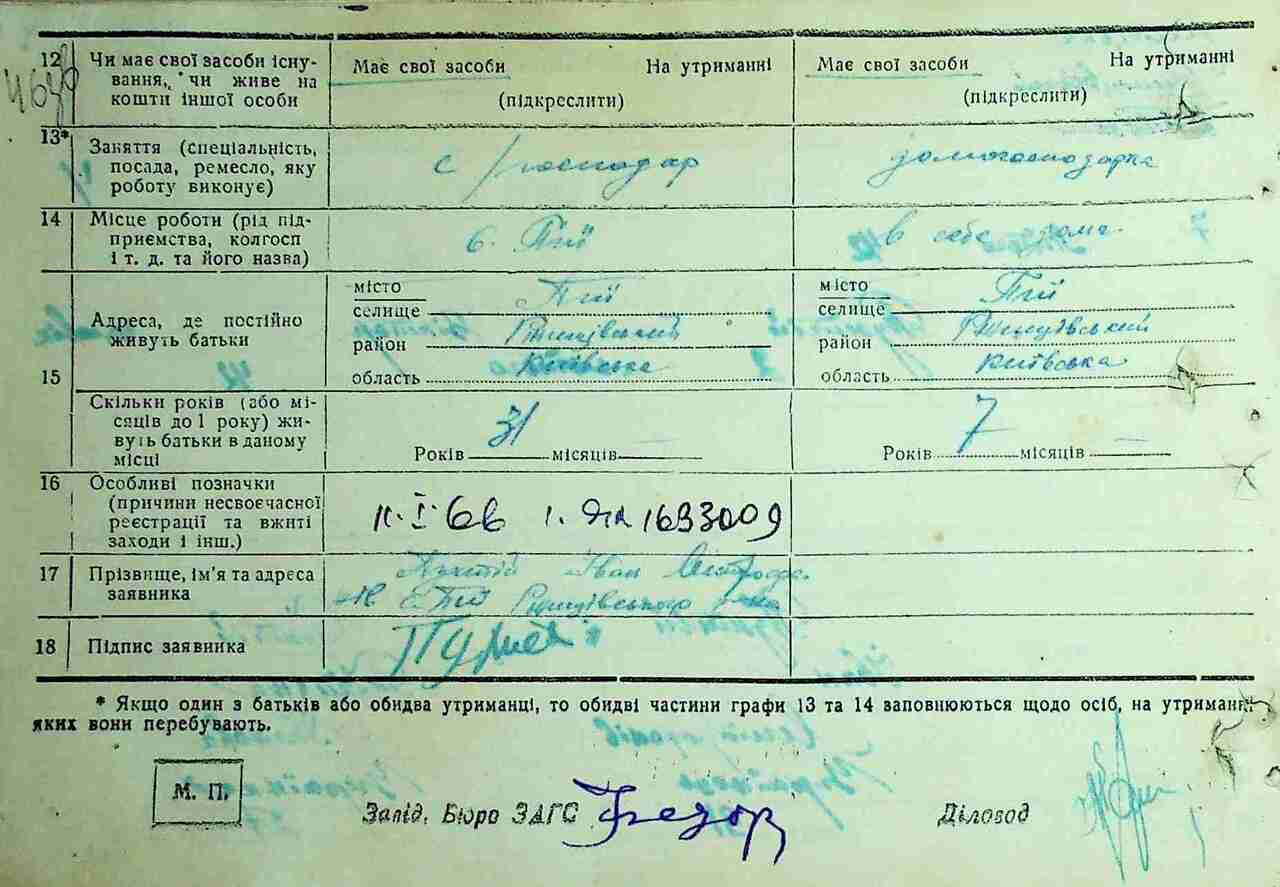 12 Чи має свої засоби існу-
вання, чи живе на
кошти іншої особи
Має свої засоби На утриманні
(підкреслити)
Має свої засоби На утриманні
(підкреслити)
13* Заняття (спеціальність,
посада, ремесло, яку
роботу виконує)
с/господар
домогосподарка
14 Місце роботи (рід під-
приємства, колгосп
і т. д. та його назва)
с. Пії
в себе дома
15 Адреса, де постійно
живуть батьки
місто
селище Пії
район Ржищівський
область Київська
місто
селище Пії
район Ржищівський
область Київська
Скільки років (або мі-
сяців до 1 року) жи-
вуть батьки в даному
місці
Років 31 місяців —
Років 7 місяців —
16 Особливі позначки
(причини несвоєчасної
реєстрації та вжиті
заходи і інш.)
11.I.66 1693009
17 Прізвище, ім'я та адреса
заявника
Іван
с. Пії Ржищівського р-на
18 Підпис заявника
* Якщо один з батьків або обидва утриманці, то обидві частини графи 13 та 14 заповнюються щодо осіб, на утриманні
яких вони перебувають.
М. П.
Завід. Бюро ЗАГС
Діловод